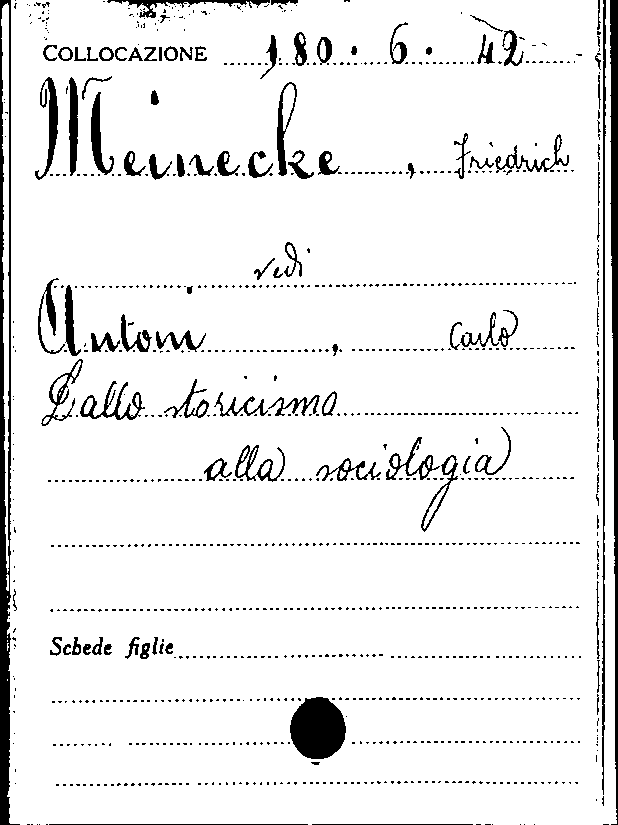 COLLOCAZIONE 180. 6. 42
Meinecke, Friedrich
vedi
Antoni, Carlo
Dallo storicismo
alla sociologia
Schede figlie